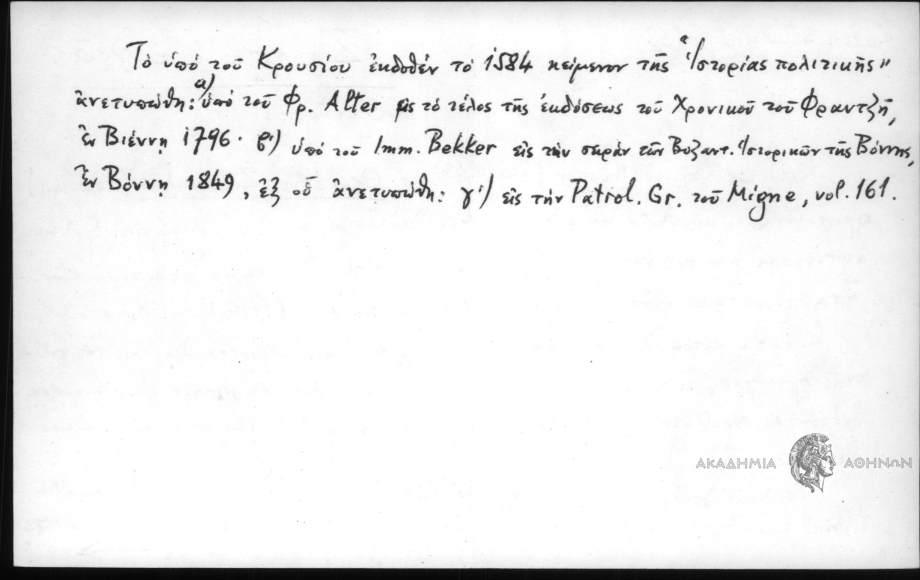 Τὸ ὑπὸ τοῦ Κρουσίου ἐκδοθὲν τὸ 1584 κείμενον τῆς "Ἱστορίας πολιτικῆς"
ἀνετυπώθη: α) ὑπὸ τοῦ Φρ. Alter εἰς τὸ τέλος τῆς ἐκδόσεως τοῦ Χρονικοῦ τοῦ Φραντζῆ,
ἐν Βιέννῃ 1796· β') ὑπὸ τοῦ Imm. Bekker εἰς τὴν σειρὰν τῶν Βυζαντ. Ἱστορικῶν τῆς Βόννης,
ἐν Βόννῃ 1849, ἐξ οὗ ἀνετυπώθη: γ') εἰς τὴν Patrol. Gr. τοῦ Migne, vol. 161.
ΑΚΑΔΗΜΙΑ ΑΘΗΝΩΝ